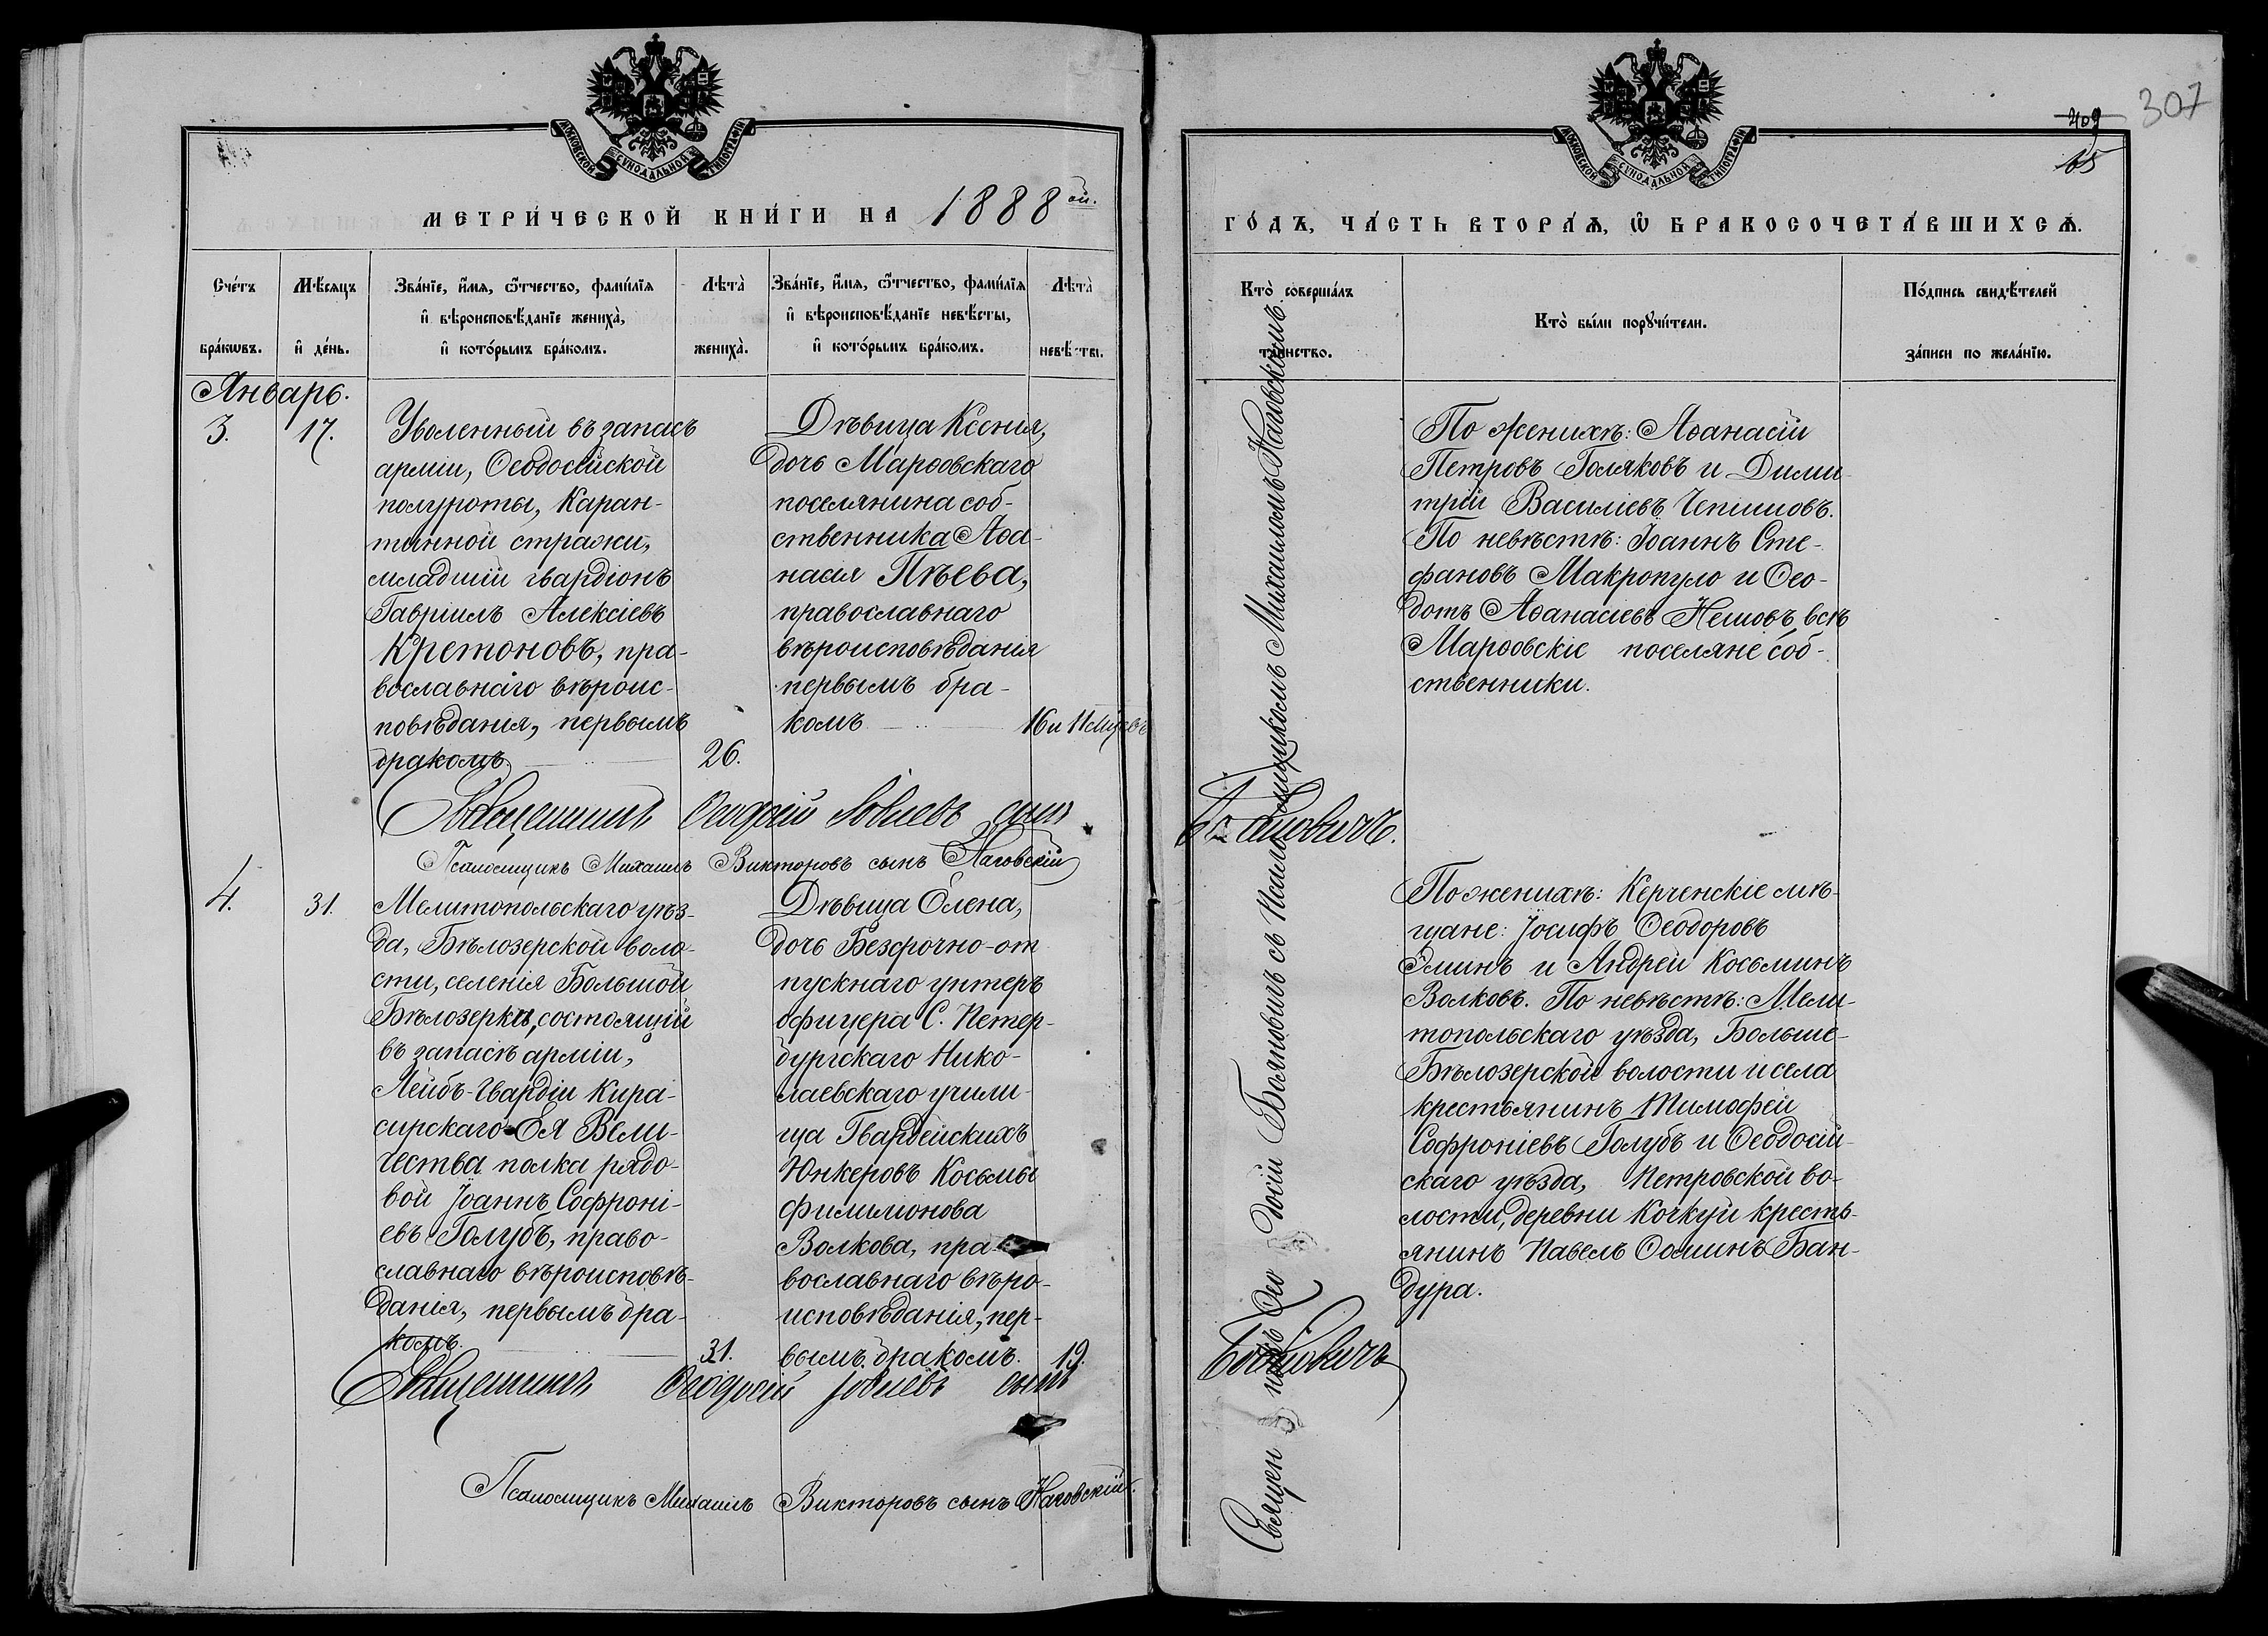 МОСКОВСКОЙ СѴНОДАЛЬНОЙ ТИПОГРАФІИ
МЕТРИ́ЧЕСКОЙ КНИ́ГИ НА 1888ой.
Сче́тъ бра́кѡвъ.
Мѣ́сѧцъ и҆ де́нь.
Зва́нїе, и҆́мѧ, ѻ҆́тчество, фами́лїѧ
и҆ вѣроисповѣ́данїе жениха̀,
и҆ кото́рымъ бра́комъ.
Лѣта̀ жениха̀.
Зва́нїе, и҆́мѧ, ѻ҆́тчество, фами́лїѧ
и҆ вѣроисповѣ́данїе невѣ́сты,
и҆ кото́рымъ бра́комъ.
Лѣта̀ невѣ́сты.
Январь.
3.
17.
Уволенный въ запасъ
арміи, Ѳеодосійской
полуроты, Каран-
тинной стражи,
младшій гвардіонъ
Гавріилъ Алексіевъ
Кретоновъ, пра-
вославнаго вѣроис-
повѣданія, первымъ
бракомъ.
26.
Дѣвица Ксенія,
дочь Марѳовскаго
поселянина соб-
ственника Аѳа-
насія Пѣева,
православнаго
вѣроисповѣданія
первымъ бра-
комъ
16 и 11 мѣсяцевъ
Священникъ Ѳеодосій Іовлевъ сынъ
Псаломщикъ Михаилъ Викторовъ сынъ Наговскій
4.
31.
Мелитопольскаго уѣз-
да, Бѣлозерской воло-
сти, селенія Большой
Бѣлозерки, состоящій
въ запасѣ арміи,
Лейбъ-Гвардіи Кира-
сирскаго ЕЯ Вели-
чества полка рядо-
вой Іоаннъ Софроні-
евъ Голубъ, право-
славнаго вѣроисповѣ-
данія, первымъ бра-
комъ.
31.
Дѣвица Елена,
дочь Безсрочно-от
пускнаго унтеръ
офицера С. Петер-
бургскаго Нико-
лаевскаго учили-
ща Гвардейскихъ
Юнкеровъ Косьмы
Филимонова
Волкова, пра-
вославнаго вѣро-
исповѣданія, пер-
вымъ бракомъ.
19.
Священникъ Ѳеодосій Іовлевъ сынъ
Псаломщикъ Михаилъ Викторовъ сынъ Наговскій.
307
409
65
МОСКОВСКОЙ СѴНОДАЛЬНОЙ ТИПОГРАФІИ
ГО́ДЪ, ЧА́СТЬ ВТОРА́Ѧ, Ѽ БРАКОСОЧЕТА́ВШИХСѦ.
Кто̀ соверша́лъ та́инство.
Кто̀ бы́ли порꙋчи́тели.
По́дпись свидѣ́телей за́писи по жела́нїю.
По женихѣ: Аѳанасій
Петровъ Голяковъ и Дими-
трій Василіевъ Чепишовъ.
По невѣстѣ: Іоаннъ Сте-
фановъ Макропуло и Ѳео-
дотъ Аѳанасіевъ Нешовъ всѣ
Марѳовскіе поселяне соб-
ственники.
Бояновичъ.
По женихѣ: Керченскіе мѣ-
щане: Іосифъ Ѳеодоровъ
Эминъ и Андрей Косьминъ
Волковъ. По невѣстѣ: Мели-
топольскаго уѣзда, Больше-
Бѣлозерской волости и села
крестьянинъ Тимофей
Софроніевъ Голубъ и Ѳеодосій-
скаго уѣзда, Петровской во-
лости, деревни Кочкуй кресть-
янинъ Павелъ Ѳоминъ Бан-
дура.
Бояновичъ
Священникъ Ѳеодосій Бояновичъ съ Псаломщикомъ Михаиломъ Наговскимъ